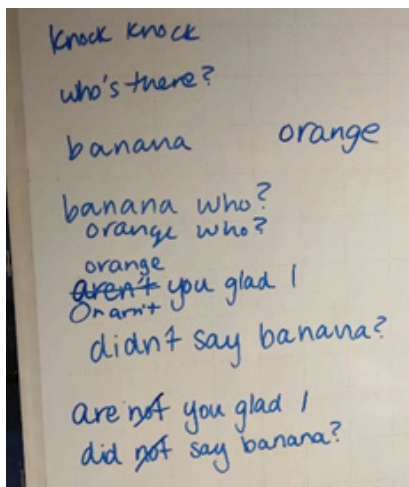 knock knock
who's there?
banana orange
banana who?
orange who?
orange
aren't you glad I
Oran't
didn't say banana?
are not you glad I
did not say banana?